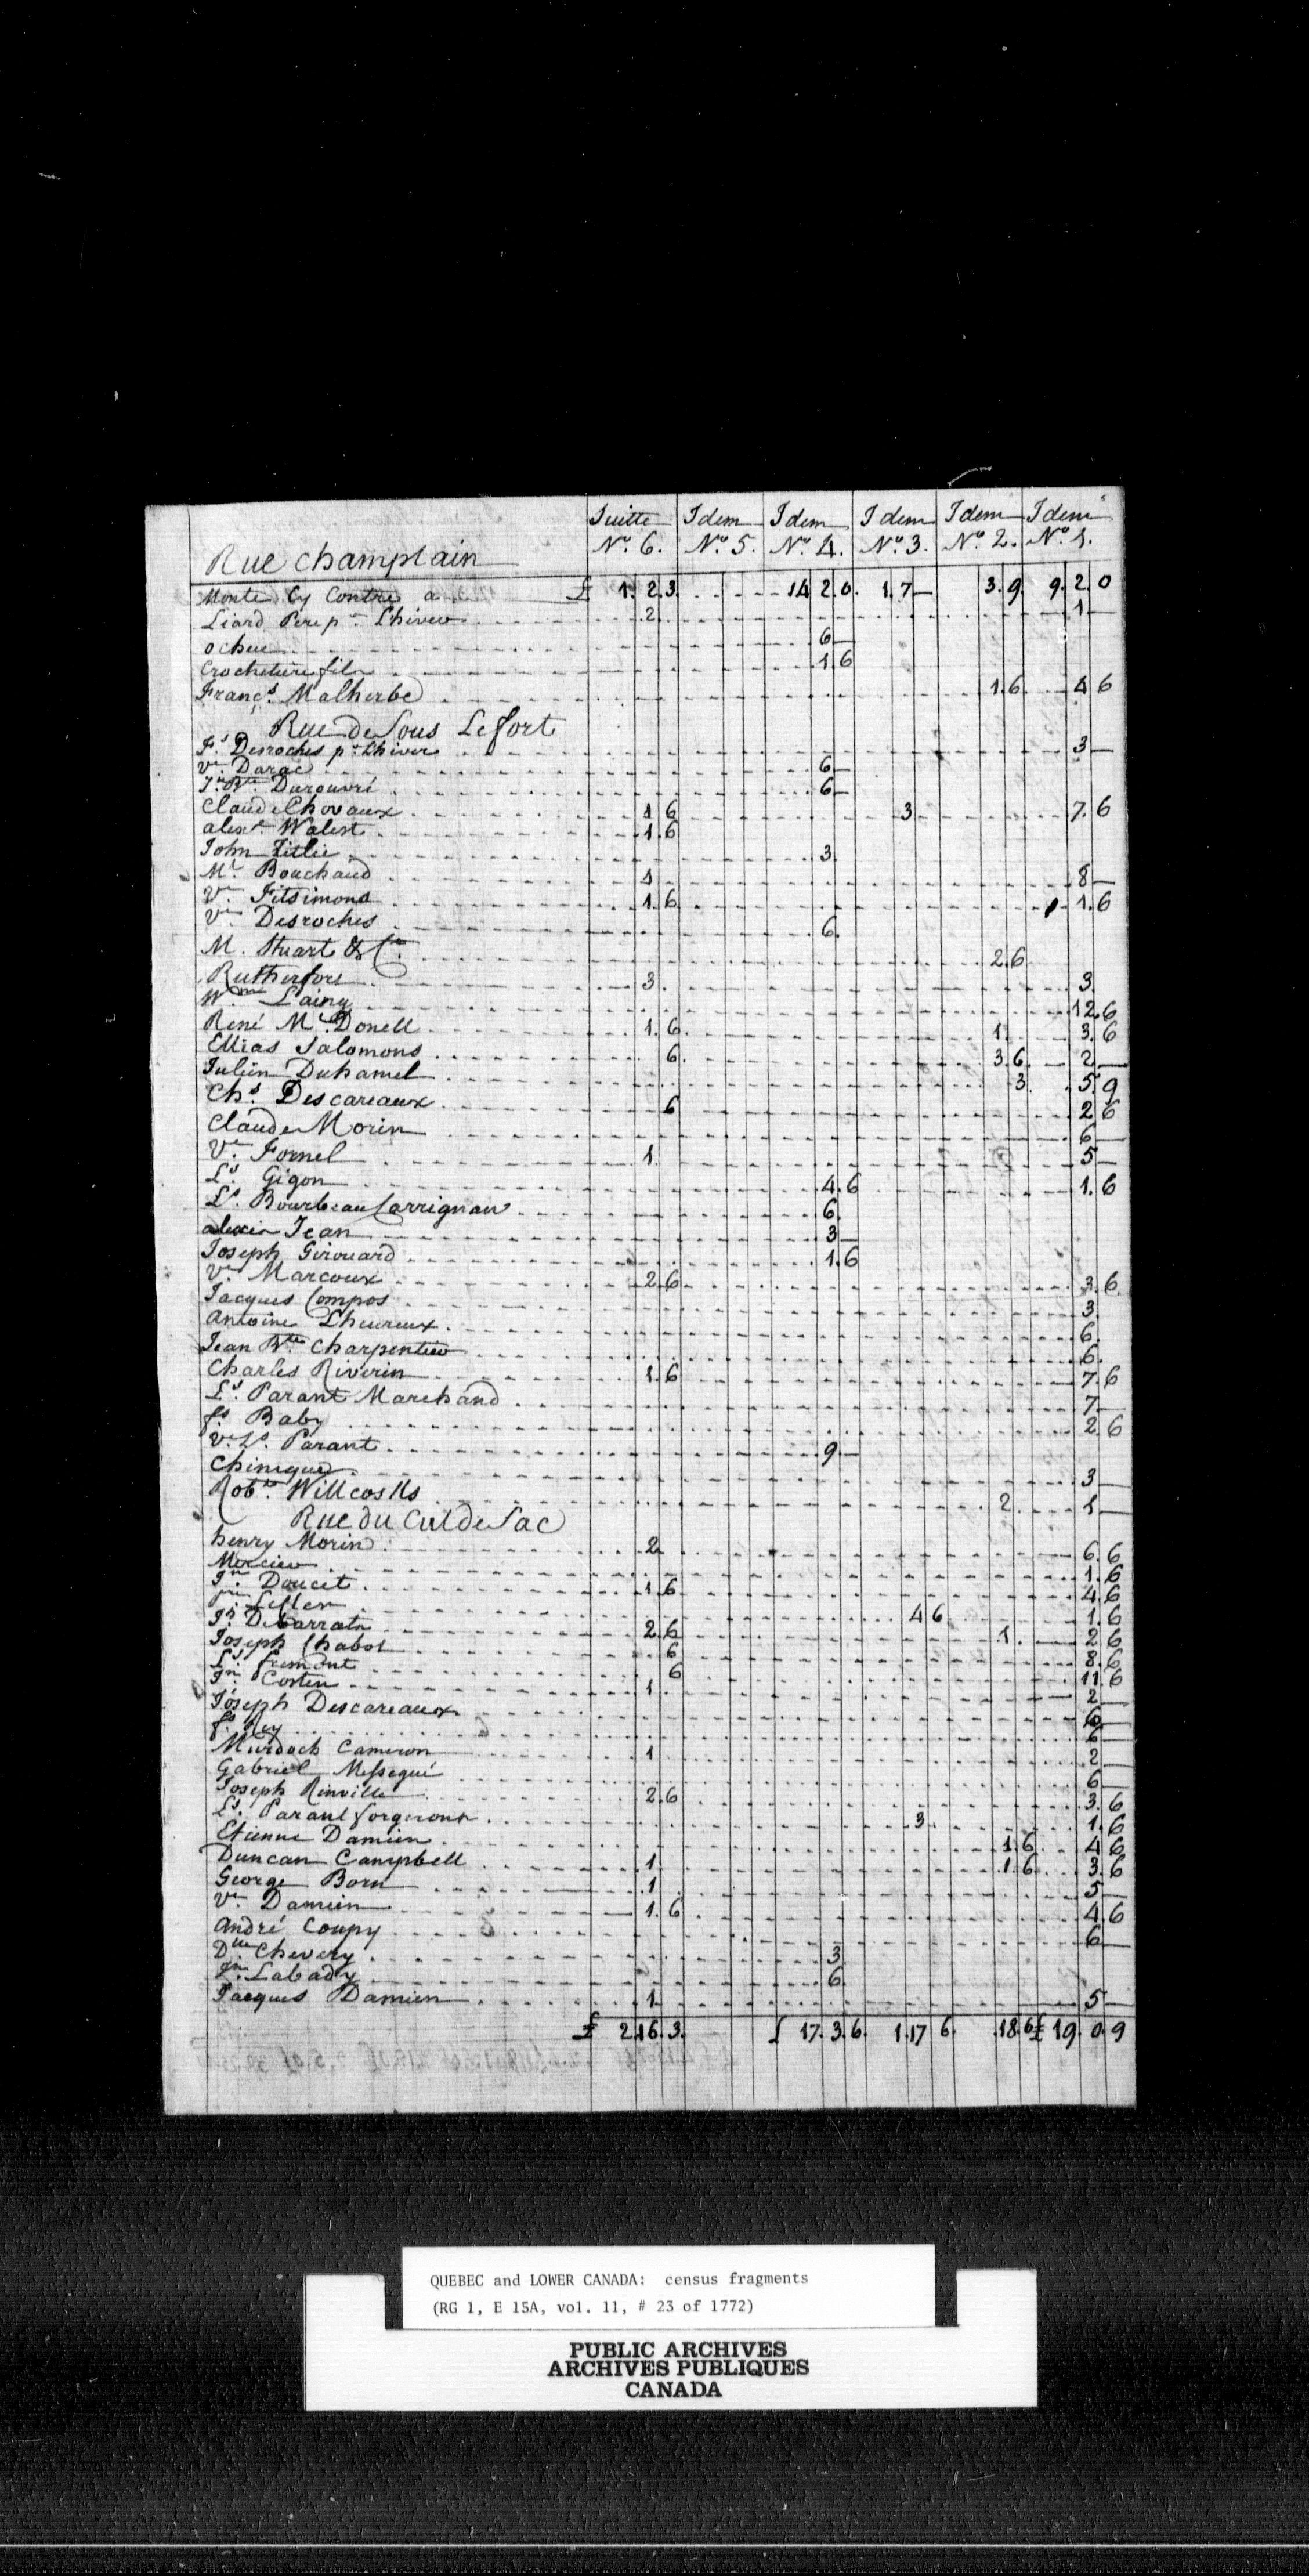 Suitte Idem Idem Idem Idem Idem
Rue champlain No. 6. No. 5. No. 4. No. 3. No. 2. No. 1.
Monte Cy Contre a £ 1. 2. 3. 14 2. 0. 1. 7 — 3. 9. 9. 2. 0
Liard Pere pr. Lhiver 2 1 —
ochu 6 —
Crocheture fils 1 6
Francs. Malherbe 1. 6. 4 6
Rue de Sous Le fort
Fs. Desroches pr. Lhiver 3 —
ve. Darac 6 —
Jn. Bte. Durouvré 6 —
Claude Chovaux 1 6 3 7. 6
alexr. Walest 1. 6
John 3.
Mr. Bouchaud 1 8 —
Ve. Fitsimons 1. 6 1. 6
Ve. Desroches 6.
M. Stuart & Ce. 2. 6
Rutherfore 3. 3.
Wm. Laing 12. 6
René Mc. Donell 1. 6. 1. 3. 6
Ellias Salomons 6. 3 6. 2 —
Julien Duhamel 3. 5. 9
Chs. Descareaux 6 2 6
Claude Morin 6 —
Ve. Fornel 1. 5 —
Ls. Gigon 4. 6 1. 6
Ls. Bourbeau Carrignan 6.
alexis Jean 3 —
Joseph Girouard 1. 6
Ve. Marcoux 2 6 3. 6.
Jacques Compos 3.
Antoine Lheureux 6.
Jean Bte. Charpentier 6.
Charles Riverin 1. 6 7. 6
Ls. Parant Marchand 7 —
fs. Baby 2. 6
Ve. Ls. Parant 9 —
Chinique 3 —
Robt. Willcosks 2. 1 —
Rue du Cul de Sac
henry Morin 2 6. 6
Mercier 1. 6
Jn. Doucet 1 6 4 6
4 6 1. 6
Js. Debarrats 2. 6 1. 2 6
Joseph Chabot 6 8. 6
Ls. fremont 6 11. 6
Jn. Costen 1. 2 —
Joseph Descareaux 6 —
fs. Rey 6 —
Murdoch Cameron 1 2 —
Gabriel Messegué 6 —
Joseph Rinville 2. 6 3. 6
Ls. Parant forgeront 3 1. 6
Etienne Damien 1. 6 4 6
Duncan Campbell 1 1. 6 3. 6
George Born 1 5 —
Ve. Damien 1. 6 4. 6
André Coupy 6 —
Dlle Chevery 3
Jn. Labady 6
Jacques Damien 1 5 —
£ 2 16. 3. £ 17. 3. 6. 1. 17 6. 18. 6 £ 19. 0. 9
QUEBEC and LOWER CANADA: census fragments
(RG 1, E 15A, vol. 11, # 23 of 1772)
PUBLIC ARCHIVES
ARCHIVES PUBLIQUES
CANADA